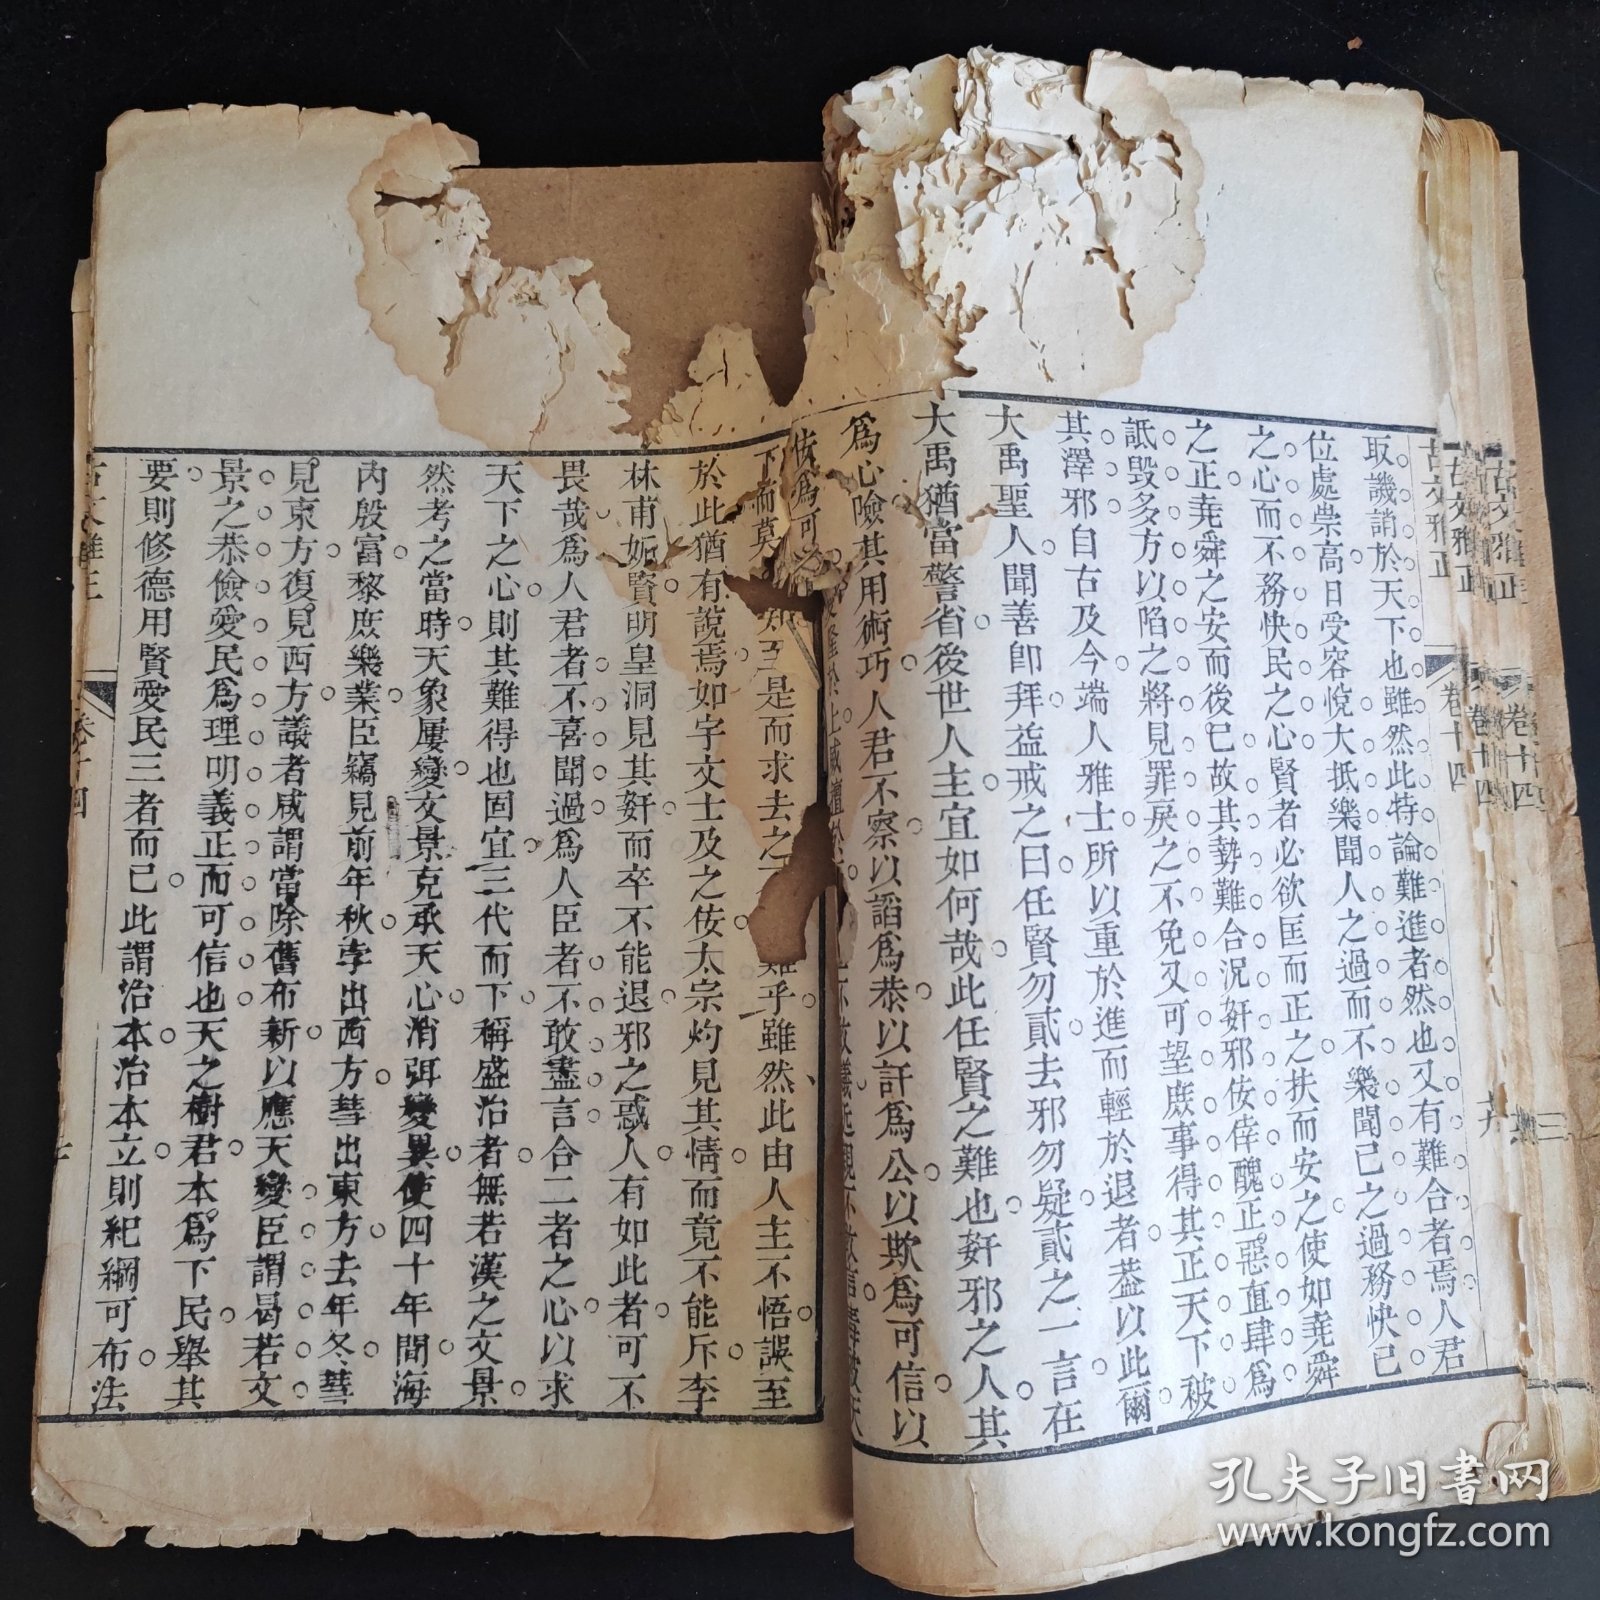 古文雅正
卷十四
取譏誚於天下也雖然此特論難進者然也又有難合者焉人君
位處崇高日受容悅大抵樂聞人之過而不樂聞己之過務快己
之心而不務快民之心賢者必欲匡而正之扶而安之使如堯舜
之正堯舜之安而後已故其勢難合況奸邪佞倖醜正惡直肆為
詆毀多方以陷之將見罪戾之不免又可望庶事得其正天下被
其澤邪自古及今端人雅士所以重於進而輕於退者葢以此爾
大禹聖人聞善卽拜益戒之曰任賢勿貳去邪勿疑貳之一言在
大禹猶當警省後世人主宜如何哉此任賢之難也姧邪之人其
為心險其用術巧人君不察以諂為恭以訐為公以欺為可信以
佞為可
下而莫
是而求去之
難乎雖然此由人主不悟誤至
於此猶有說焉如宇文士及之佞太宗灼見其情而竟不能斥李
林甫妬賢明皇洞見其奸而卒不能退邪之惑人有如此者可不
畏哉為人君者不喜聞過為人臣者不敢盡言合二者之心以求
天下之心則其難得也固宜三代而下稱盛治者無若漢之文景
然考之當時天象屢變文景克承天心消弭變異使四十年間海
內殷富黎庶樂業臣竊見前年秋孛出西方彗出東方去年冬彗
見東方復見西方議者咸謂當除舊布新以應天變臣謂曷若文
景之恭儉愛民為理明義正而可信也天之樹君本為下民舉其
要則修德用賢愛民三者而已此謂治本治本立則紀綱可布法
孔夫子旧书网
www.kongfz.com